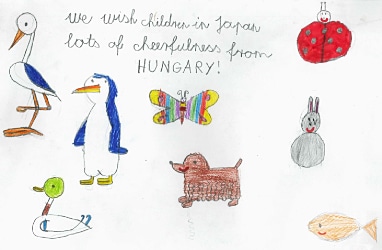 we wish children in Japan
lots of cheerfulness from
HUNGARY!